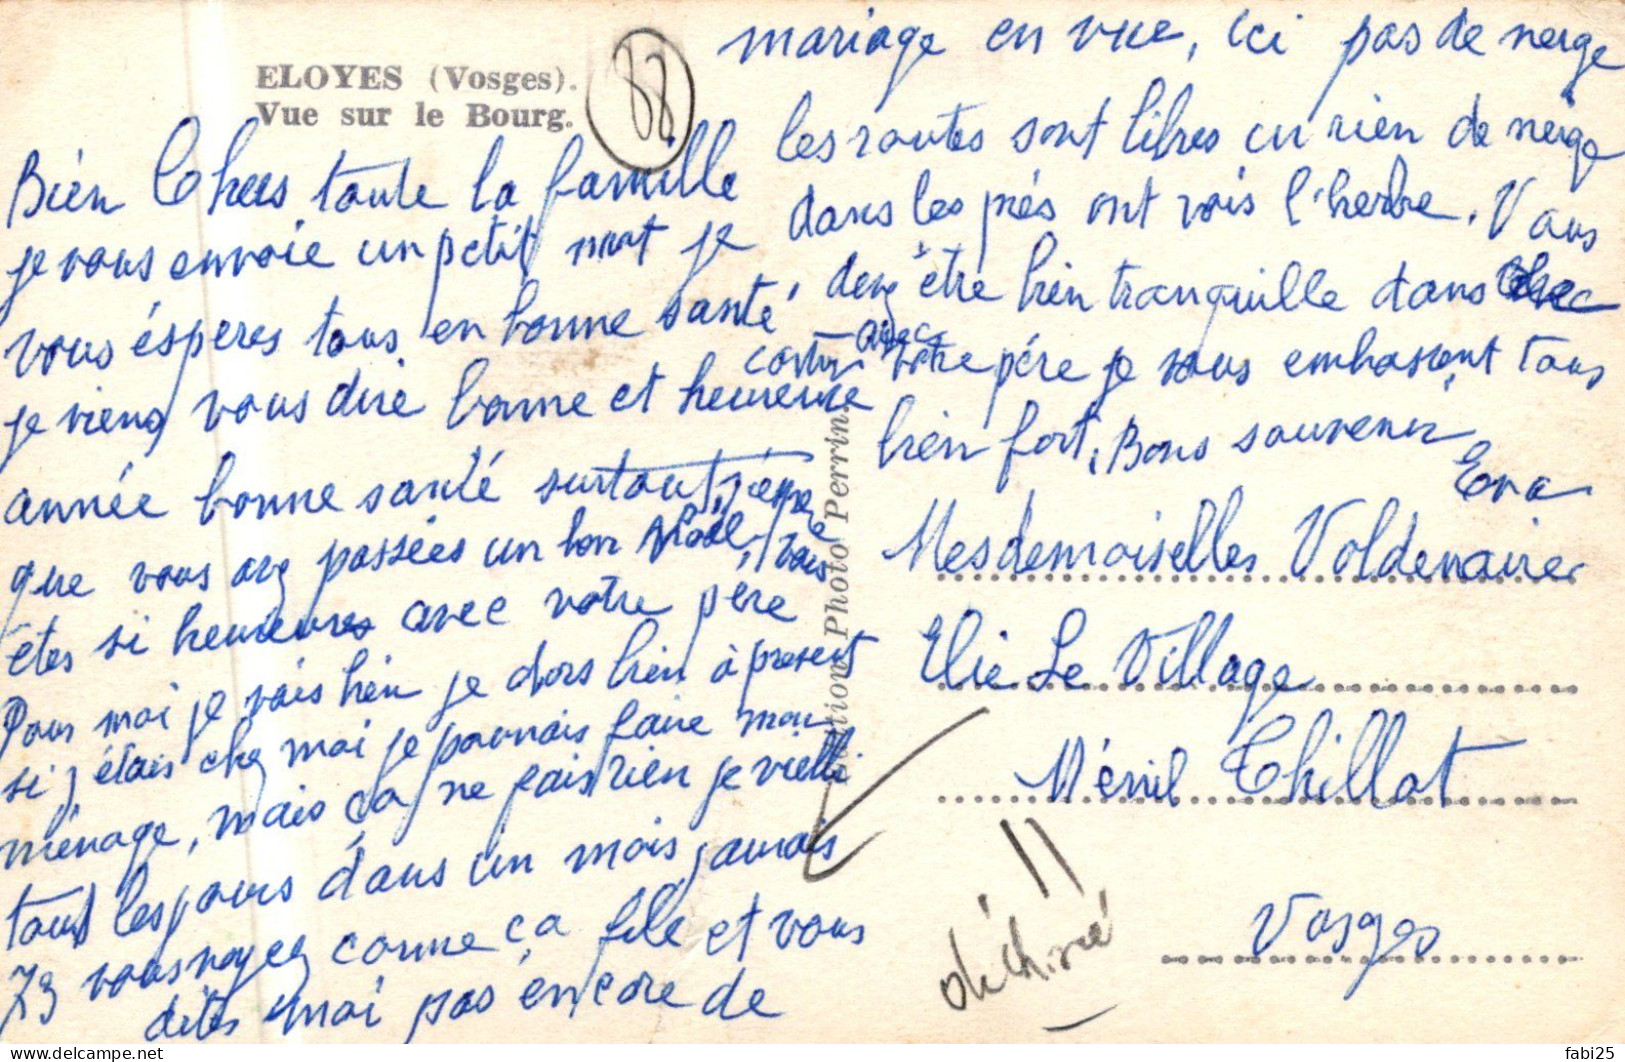 ELOYES (Vosges).
Vue sur le Bourg.
88
Bien Chers toute la famille
je vous envoie un petit mot je
vous éspères tous en bonne santé
je viens vous dire bonne et heureuse
année bonne santé surtout, j'éspère
que vous avez passées un bon Noël, vous
êtes si heureuses avec votre père
Pour moi je vais bien je dors bien à présent
si j'étais chez moi je pourrais faire mon
ménage, mais ça ne fais rien je vielli
tous les jours dans un mois, j'aurais
73 vous voyez comme ça file et vous
dites moi pas encore de
mariage en vue, ici pas de neige
les routes sont libres cu rien de neige
dans les prés ont vois l'herbe. Vous
devez être bien tranquille dans
avec
votre père je vous embrassent tous
bien fort, Bons souvenir
Eva
Edition Photo Perrin.
Mesdemoiselles Voldenaire
Elie Le Village
Ménil Thillot
Vosges
déchiré
fabi25